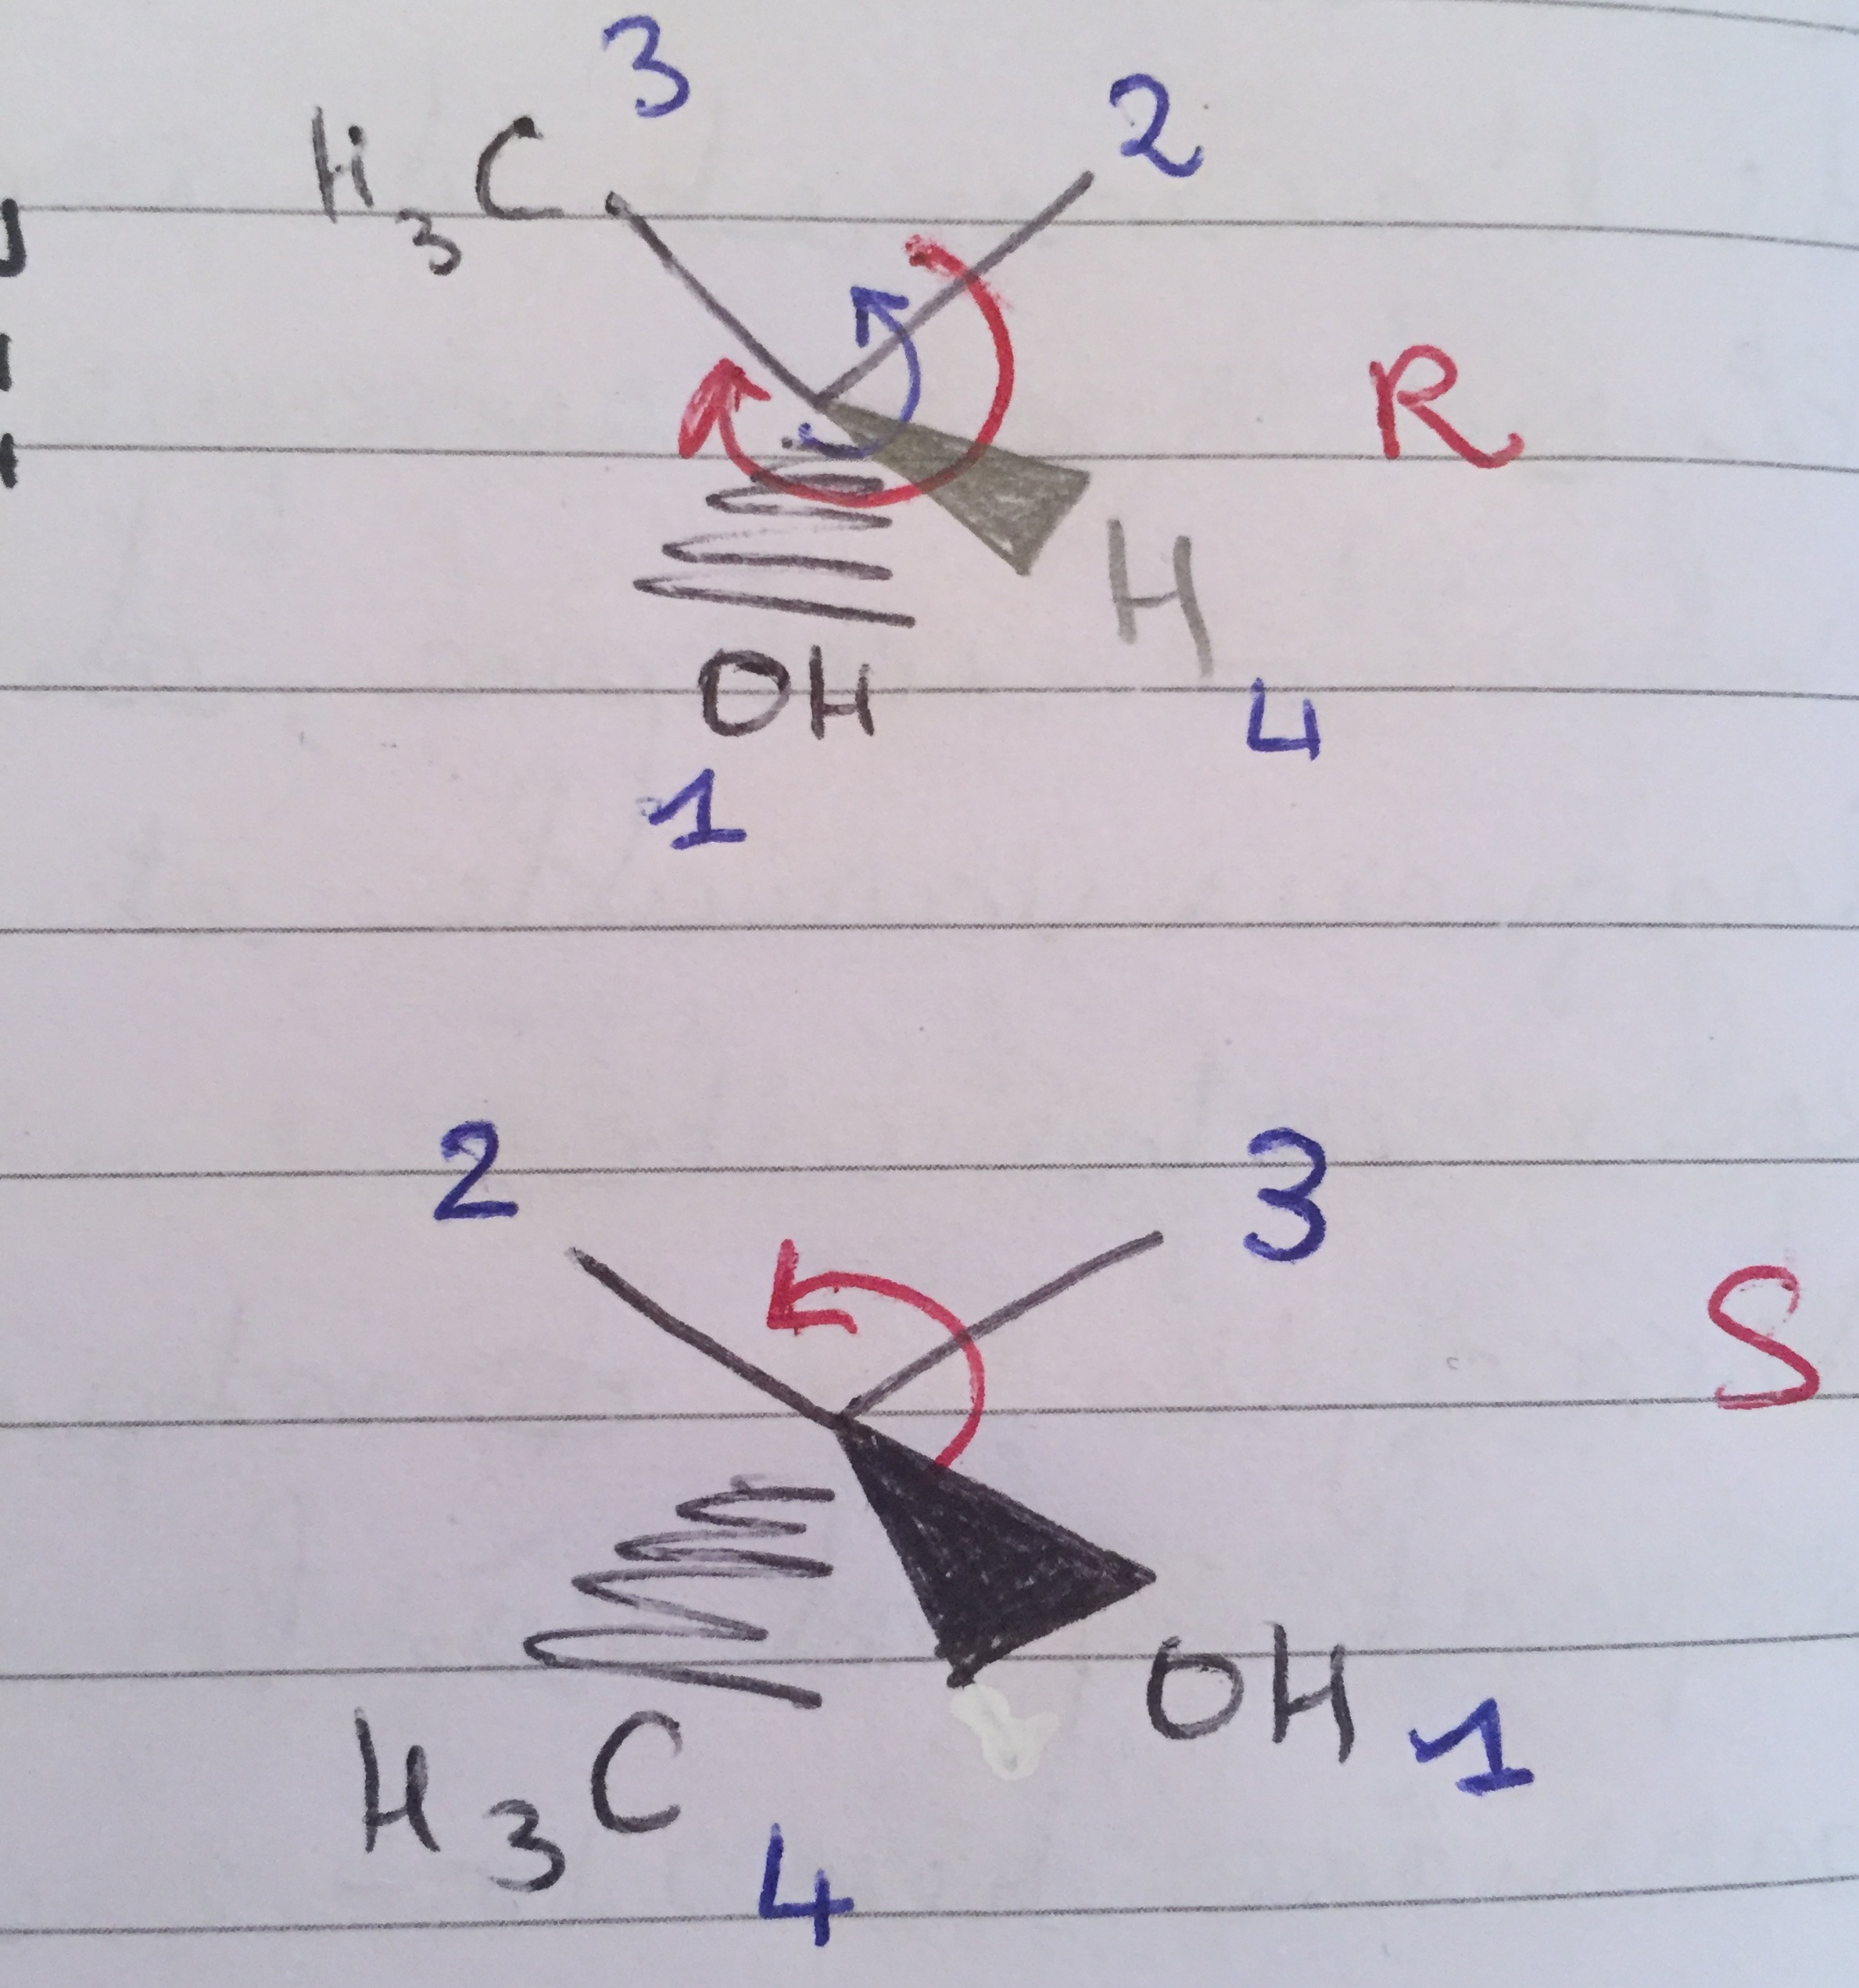 3
2
H₃C
R
H
OH
4
1
2
3
S
OH 1
H₃C
4